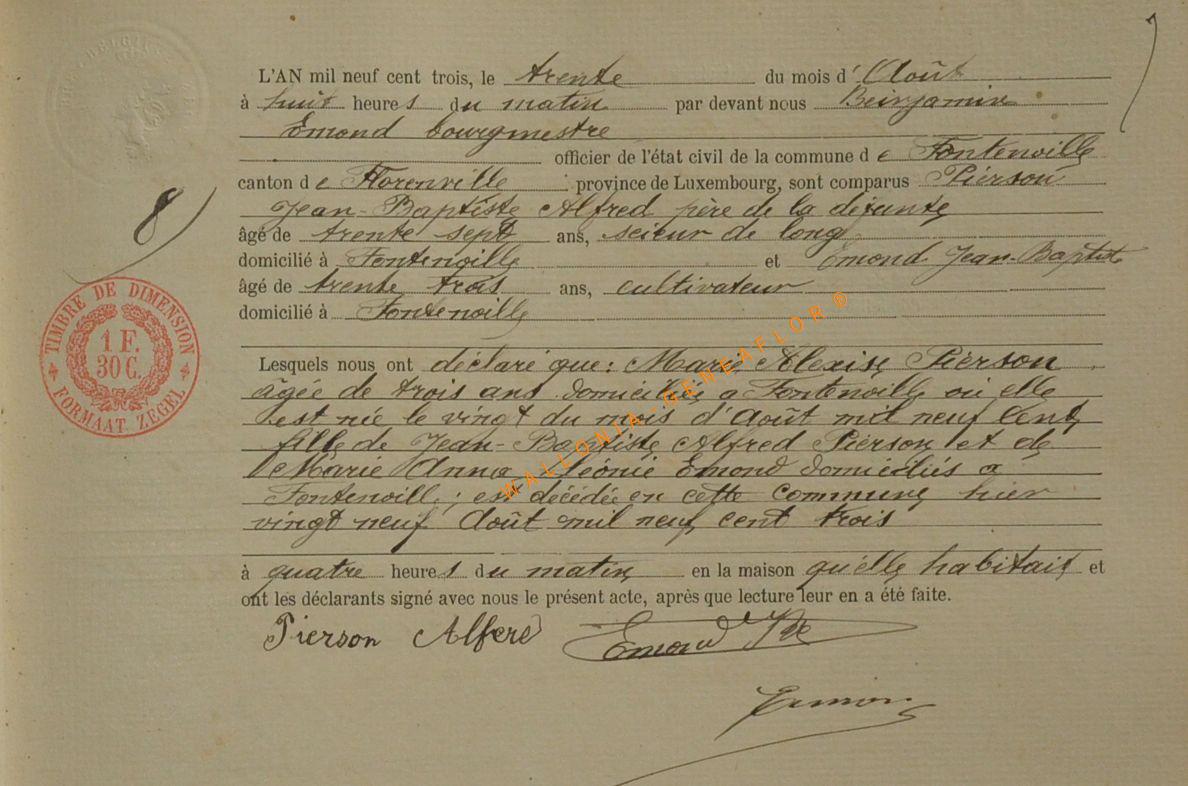 L'AN mil neuf cent trois, le trente du mois d'Août
à huit heures du matin par devant nous Beinjamin
Emond bourgmestre
officier de l'état civil de la commune de Fontenoille
canton de Florenville province de Luxembourg, sont comparus Pierson
Jean-Baptiste Alfred père de la défunte
âgé de trente sept ans, scieur de long
domicilié à Fontenoille et Emond Jean-Baptiste
âgé de trente trois ans, cultivateur
domicilié à Fontenoille
8
TIMBRE DE DIMENSION
1 F.
30 C.
FORMAAT ZEGEL
Lesquels nous ont déclaré que: Marie Alexise Pierson
âgée de trois ans domiciliée a Fontenoille où elle
est née le vingt du mois d'Août mil neuf cent
fille de Jean-Baptiste Alfred Pierson et de
Marie Anna Léonie Emond domiciliés a
Fontenoille; est décédée en cette commune hier
vingt neuf Août mil neuf cent trois
à quatre heures du matin en la maison qu'elle habitait et
ont les déclarants signé avec nous le présent acte, après que lecture leur en a été faite.
WALLONIA-GENEAFLOR®
Pierson Alfred Emond